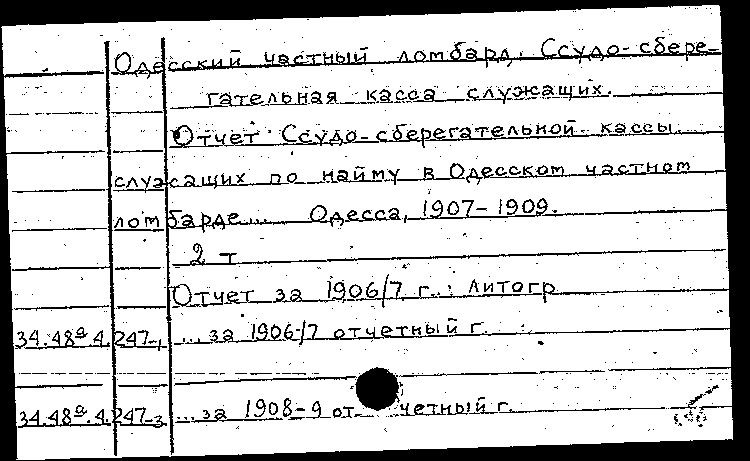 Одесский частный ломбард. Ссудо-сбере-
гательная касса служащих.
Отчет Ссудо-сберегательной кассы
служащих по найму в Одесском частном
ломбарде... Одесса, 1907-1909.
2 т
Отчет за 1906/7 г.: литогр
34.48а.4.247-1 ...за 1906/7 отчетный г.
34.48а.4.247-3 ...за 1908-9 отчетный г.